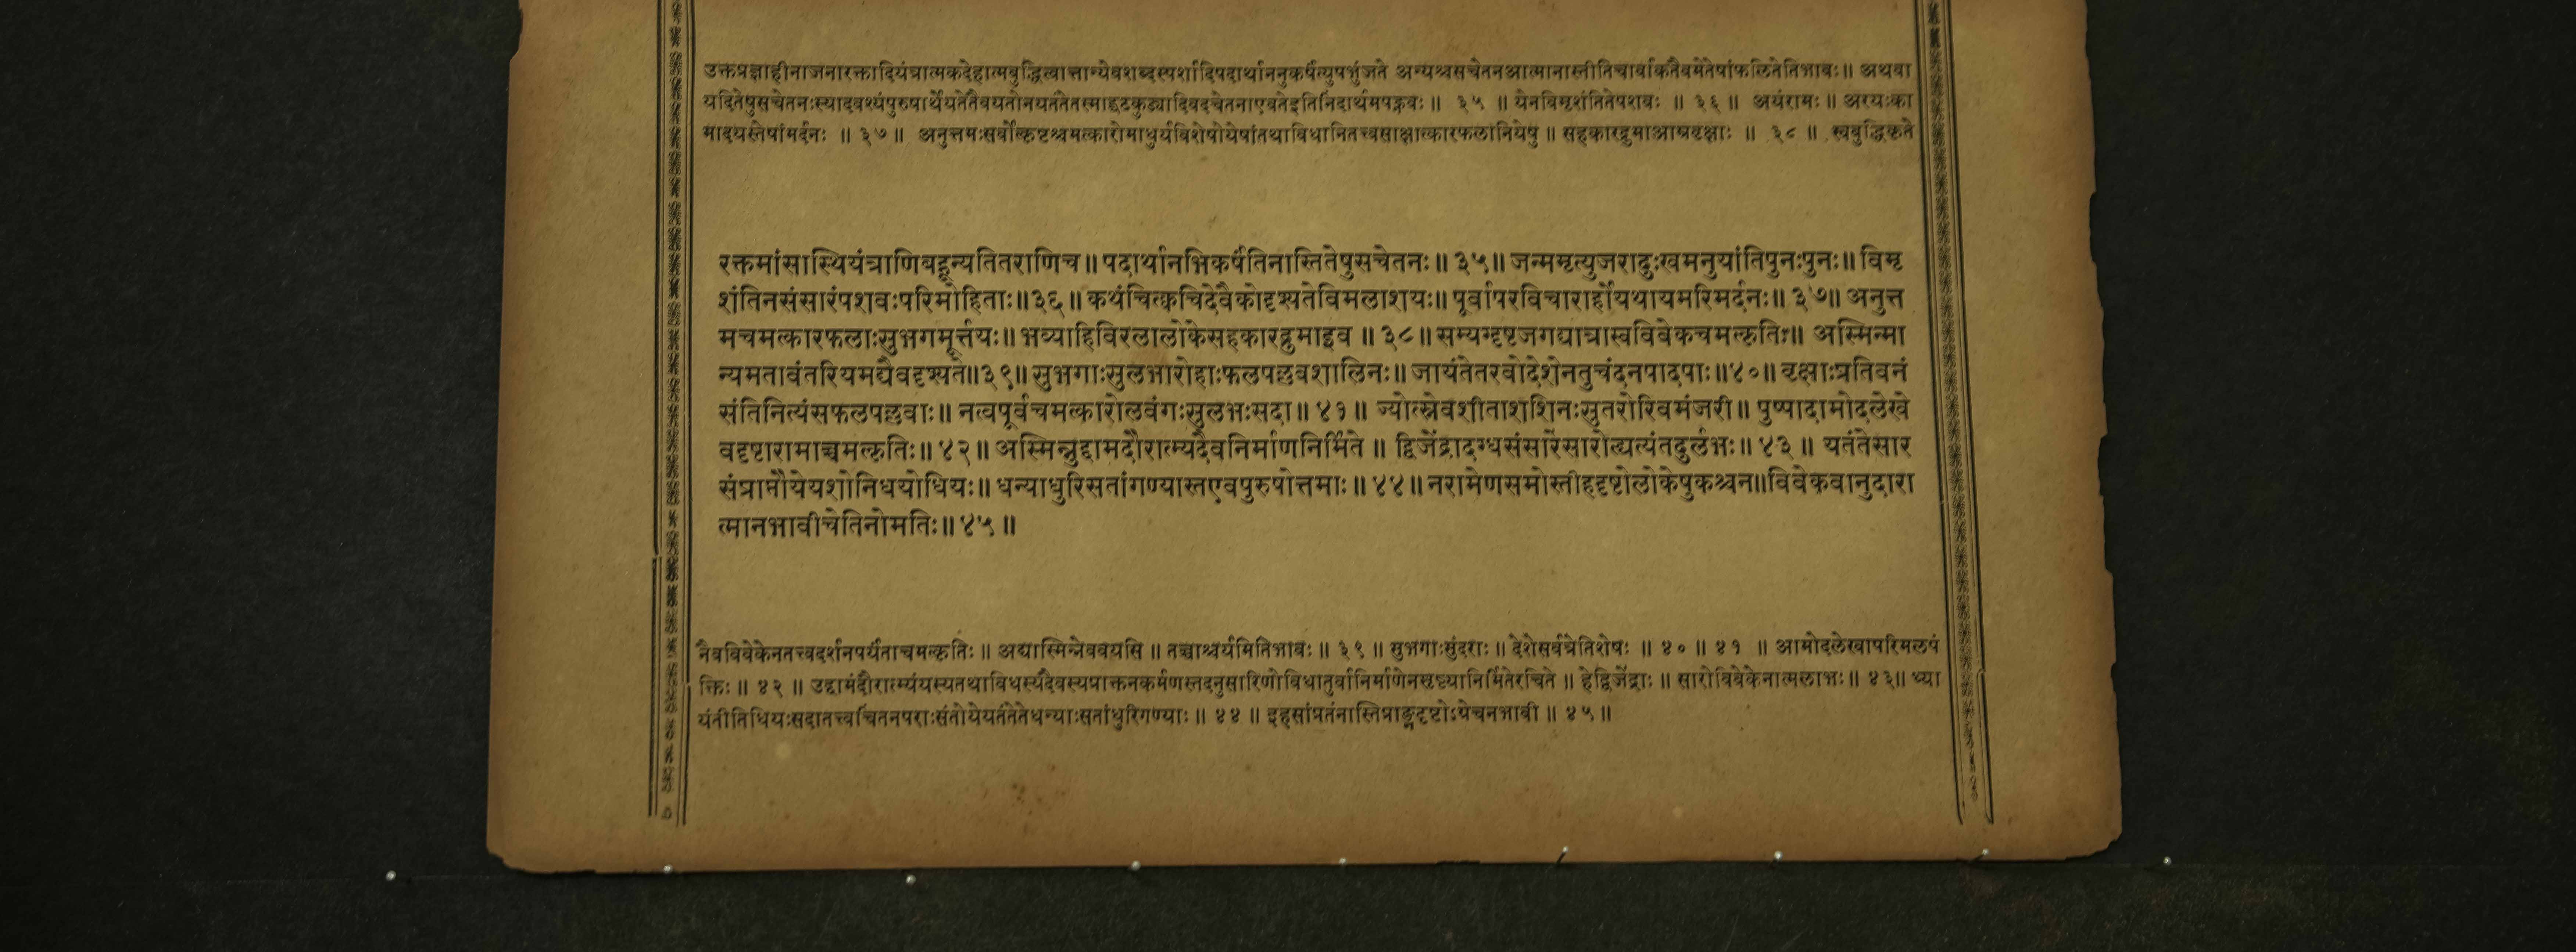 उक्तप्रज्ञाहीनाजनारक्तादियंत्रात्मकदेहात्मबुद्धित्वात्तान्येवशब्दस्पर्शादिपदार्थाननुकर्षंत्युपभुंजते अन्यश्चसचेतनआत्मानास्तीतिचार्वाकतैवमेतेषांफलितेतिभावः॥ अथवा
यदितेषुसचेतनःस्यादवश्यंपुरुषार्थेयतेतैवयतोनयततेतस्माद्घटकुड्यादिवदचेतनाएवतेइतिनिंदार्थमपह्नवः॥ ३५ ॥ येनविमृशंतितेपशवः ॥ ३६ ॥ अयंरामः॥ अरयःका
मादयस्तेषांमर्दनः ॥ ३७॥ अनुत्तमःसर्वोत्कृष्टश्चमत्कारोमाधुर्यविशेषोयेषांतथाविधानितत्त्वसाक्षात्कारफलानियेषु॥ सहकारद्रुमाआम्रवृक्षाः ॥ ३८ ॥ स्वबुद्धिकृते
रक्तमांसास्थियंत्राणिबहून्यतितराणिच॥ पदार्थानभिकर्षंतिनास्तितेषुसचेतनः॥ ३५॥ जन्ममृत्युजरादुःखमनुयांतिपुनःपुनः॥ विमृ
शंतिनसंसारंपशवःपरिमोहिताः॥३६॥ कथंचित्क्वचिदेवैकोदृश्यतेविमलाशयः॥ पूर्वापरविचारार्होयथायमरिमर्दनः॥ ३७॥ अनुत्त
मचमत्कारफलाःसुभगमूर्त्तयः॥ भव्याहिविरलालोकेसहकारद्रुमाइव ॥ ३८॥ सम्यग्दृष्टजगद्यात्रास्वविवेकचमत्कृतिः॥ अस्मिन्मा
न्यमतावंतरियमद्यैवदृश्यते॥३९॥ सुभगाःसुलभारोहाःफलपल्लवशालिनः॥ जायंतेतरवोदेशेनतुचंदनपादपाः॥४०॥ वृक्षाःप्रतिवनं
संतिनित्यंसफलपल्लवाः॥ नत्वपूर्वचमत्कारोलवंगःसुलभःसदा॥ ४१॥ ज्योत्स्नेवशीताशशिनःसुतरोरिवमंजरी॥ पुष्पादामोदलेखे
वदृष्टारामाच्चमत्कृतिः॥ ४२॥ अस्मिन्नुद्दामदौरात्म्यदैवनिर्माणनिर्मिते॥ द्विजेंद्रादग्धसंसारेसारोत्द्यत्यंतदुर्लभः॥ ४३॥ यतंतेसार
संप्राप्तौयेयशोनिधयोधियः॥ धन्याधुरिसतांगण्यास्तएवपुरुषोत्तमाः॥ ४४॥ नरामेणसमोस्तीहदृष्टोलोकेषुकश्चन॥विवेकवानुदारा
त्मानभावीचेतिनोमतिः॥४५॥
नैवविवेकेनतत्त्वदर्शनपर्यंताचमत्कृतिः॥ अद्यास्मिन्नेववयसि॥ तच्चाश्चर्यमितिभावः॥ ३९॥ सुभगाःसुंदराः॥ देशेसर्वत्रेतिशेषः ॥ ४०॥ ४१ ॥ आमोदलेखापरिमलपं
क्तिः॥ ४२ ॥ उद्दामंदौरात्म्यंयस्यतथाविधस्यदैवस्यप्राक्तनकर्मणस्तदनुसारिणोविधातुर्वानिर्माणेनसृष्ट्यानिर्मितेरचिते ॥ हेद्विजेंद्राः॥ सारोविवेकेनात्मलाभः॥ ४३॥ ध्या
यंतीतिधियःसदातत्त्वचिंतनपराःसंतोयेयतंतेतेधन्याःसतांधुरिगण्याः॥ ४४ ॥ इहसांप्रतंनास्तिप्राङ्नदृष्टोऽग्रेचनभावी॥ ४५॥